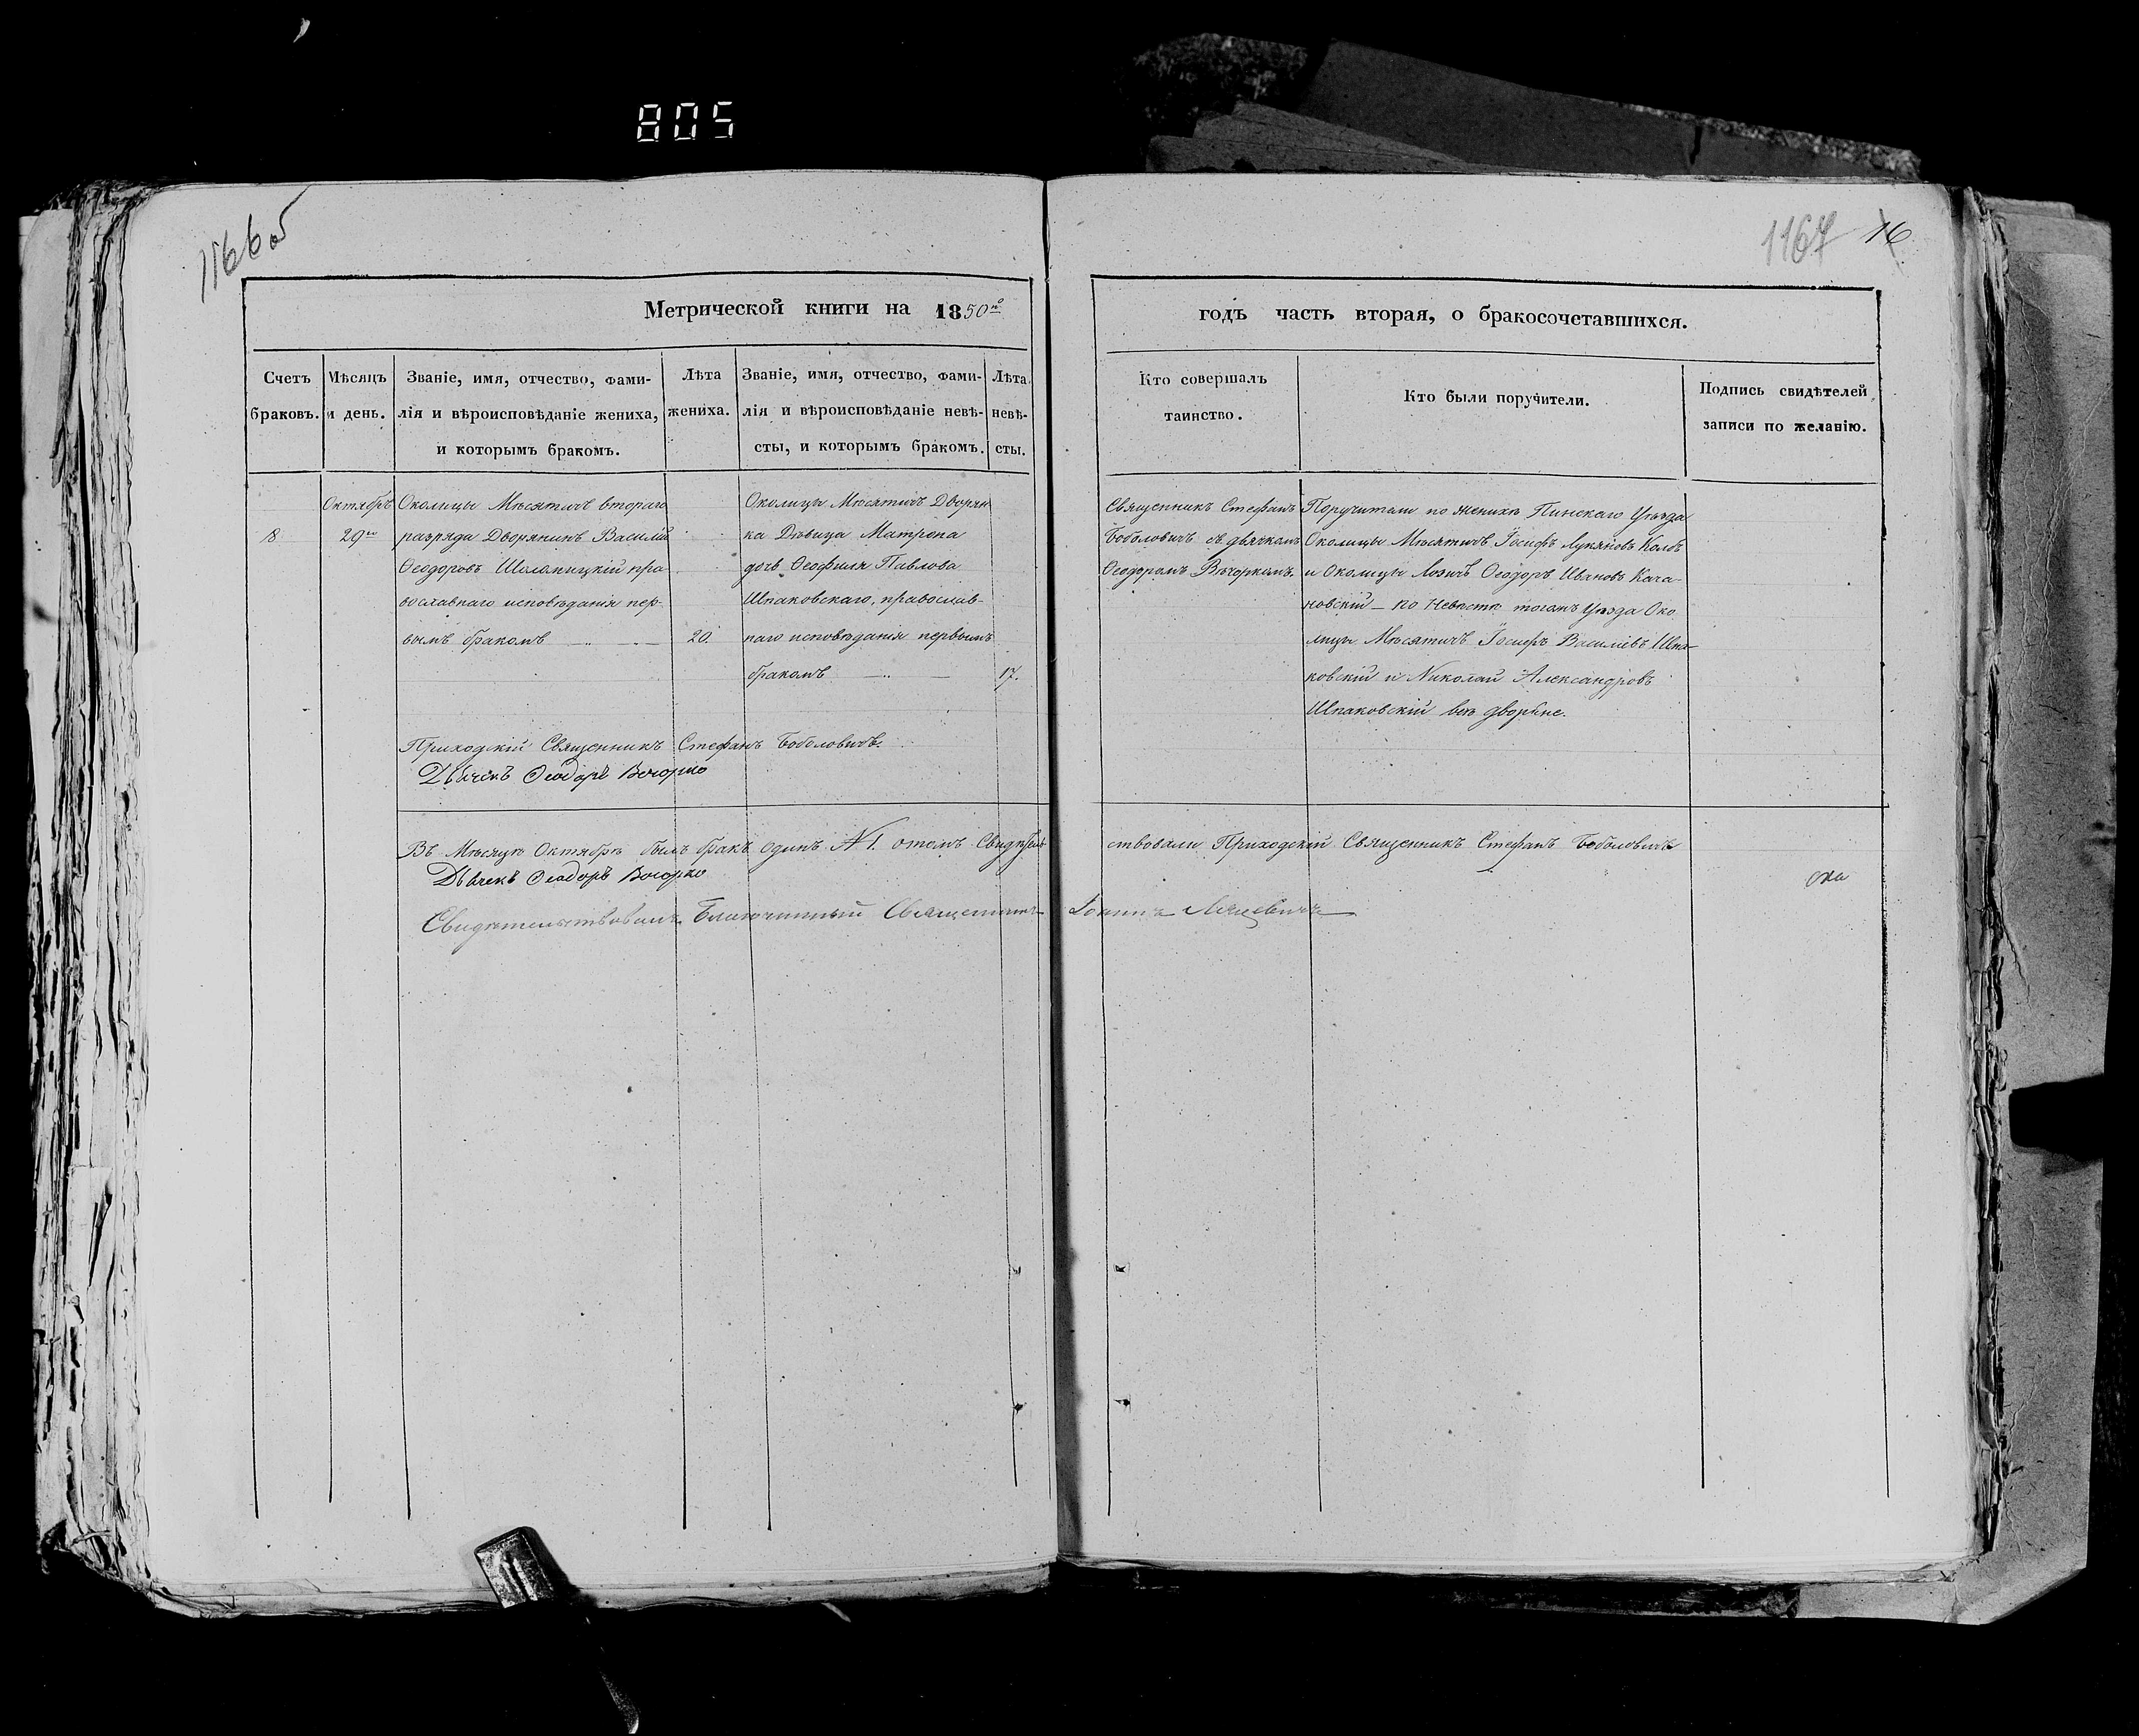 805
1166об
1167 16
Метрической книги на 1850й
годъ часть вторая, о бракосочетавшихся.
Счетъ браковъ.
Мѣсяцъ и день.
Званіе, имя, отчество, фами-
лія и вѣроисповѣданіе жениха,
и которымъ бракомъ.
Лѣта
жениха.
Званіе, имя, отчество, фами-
лія и вѣроисповѣданіе невѣ-
сты, и которымъ бракомъ.
Лѣта
невѣ-
сты.
Кто совершалъ
таинство.
Кто были поручители.
Подпись свидѣтелей
записи по желанію.
8
Октябрь
29го
Околицы Мѣсятичъ втораго
разряда Дворянинъ Василій
Ѳеодоровъ Шоломицкій пра
вославнаго исповѣданія пер-
вымъ бракомъ
20.
Околицы Мѣсятичъ Дворян
ка Дѣвица Матрона
дочь Ѳеофила Павлова
Шпаковскаго, православ-
наго исповѣданія первымъ
бракомъ
17.
Священникъ Стефанъ
Боболовичъ съ дьячкомъ
Ѳеодоромъ Вѣчоркомъ.
Поручители по женихѣ Пинскаго Уѣзда
Околицы Мѣсятичъ Іосифъ Лукяновъ Колбъ
и Околицы Лозичъ Ѳеодоръ Ивановъ Кача-
новскій — по Невѣстѣ тогожъ Уѣзда Око
лицы Мѣсятичъ Іосифъ Василіевъ Шпа-
ковскій и Николай Александровъ
Шпаковскій всѣ дворяне.
Приходскій Священникъ Стефанъ Боболовичъ.
Дьячекъ Ѳеодоръ Вечорко
Въ Мѣсяцѣ Октябрѣ былъ бракъ одинъ № 1. отомъ Свидѣтель
ствовали Приходскій Священникъ Стефанъ Боболовичъ
Дьячекъ Ѳеодоръ Вечорко
Свидѣтельствовалъ Благочинный Священникъ